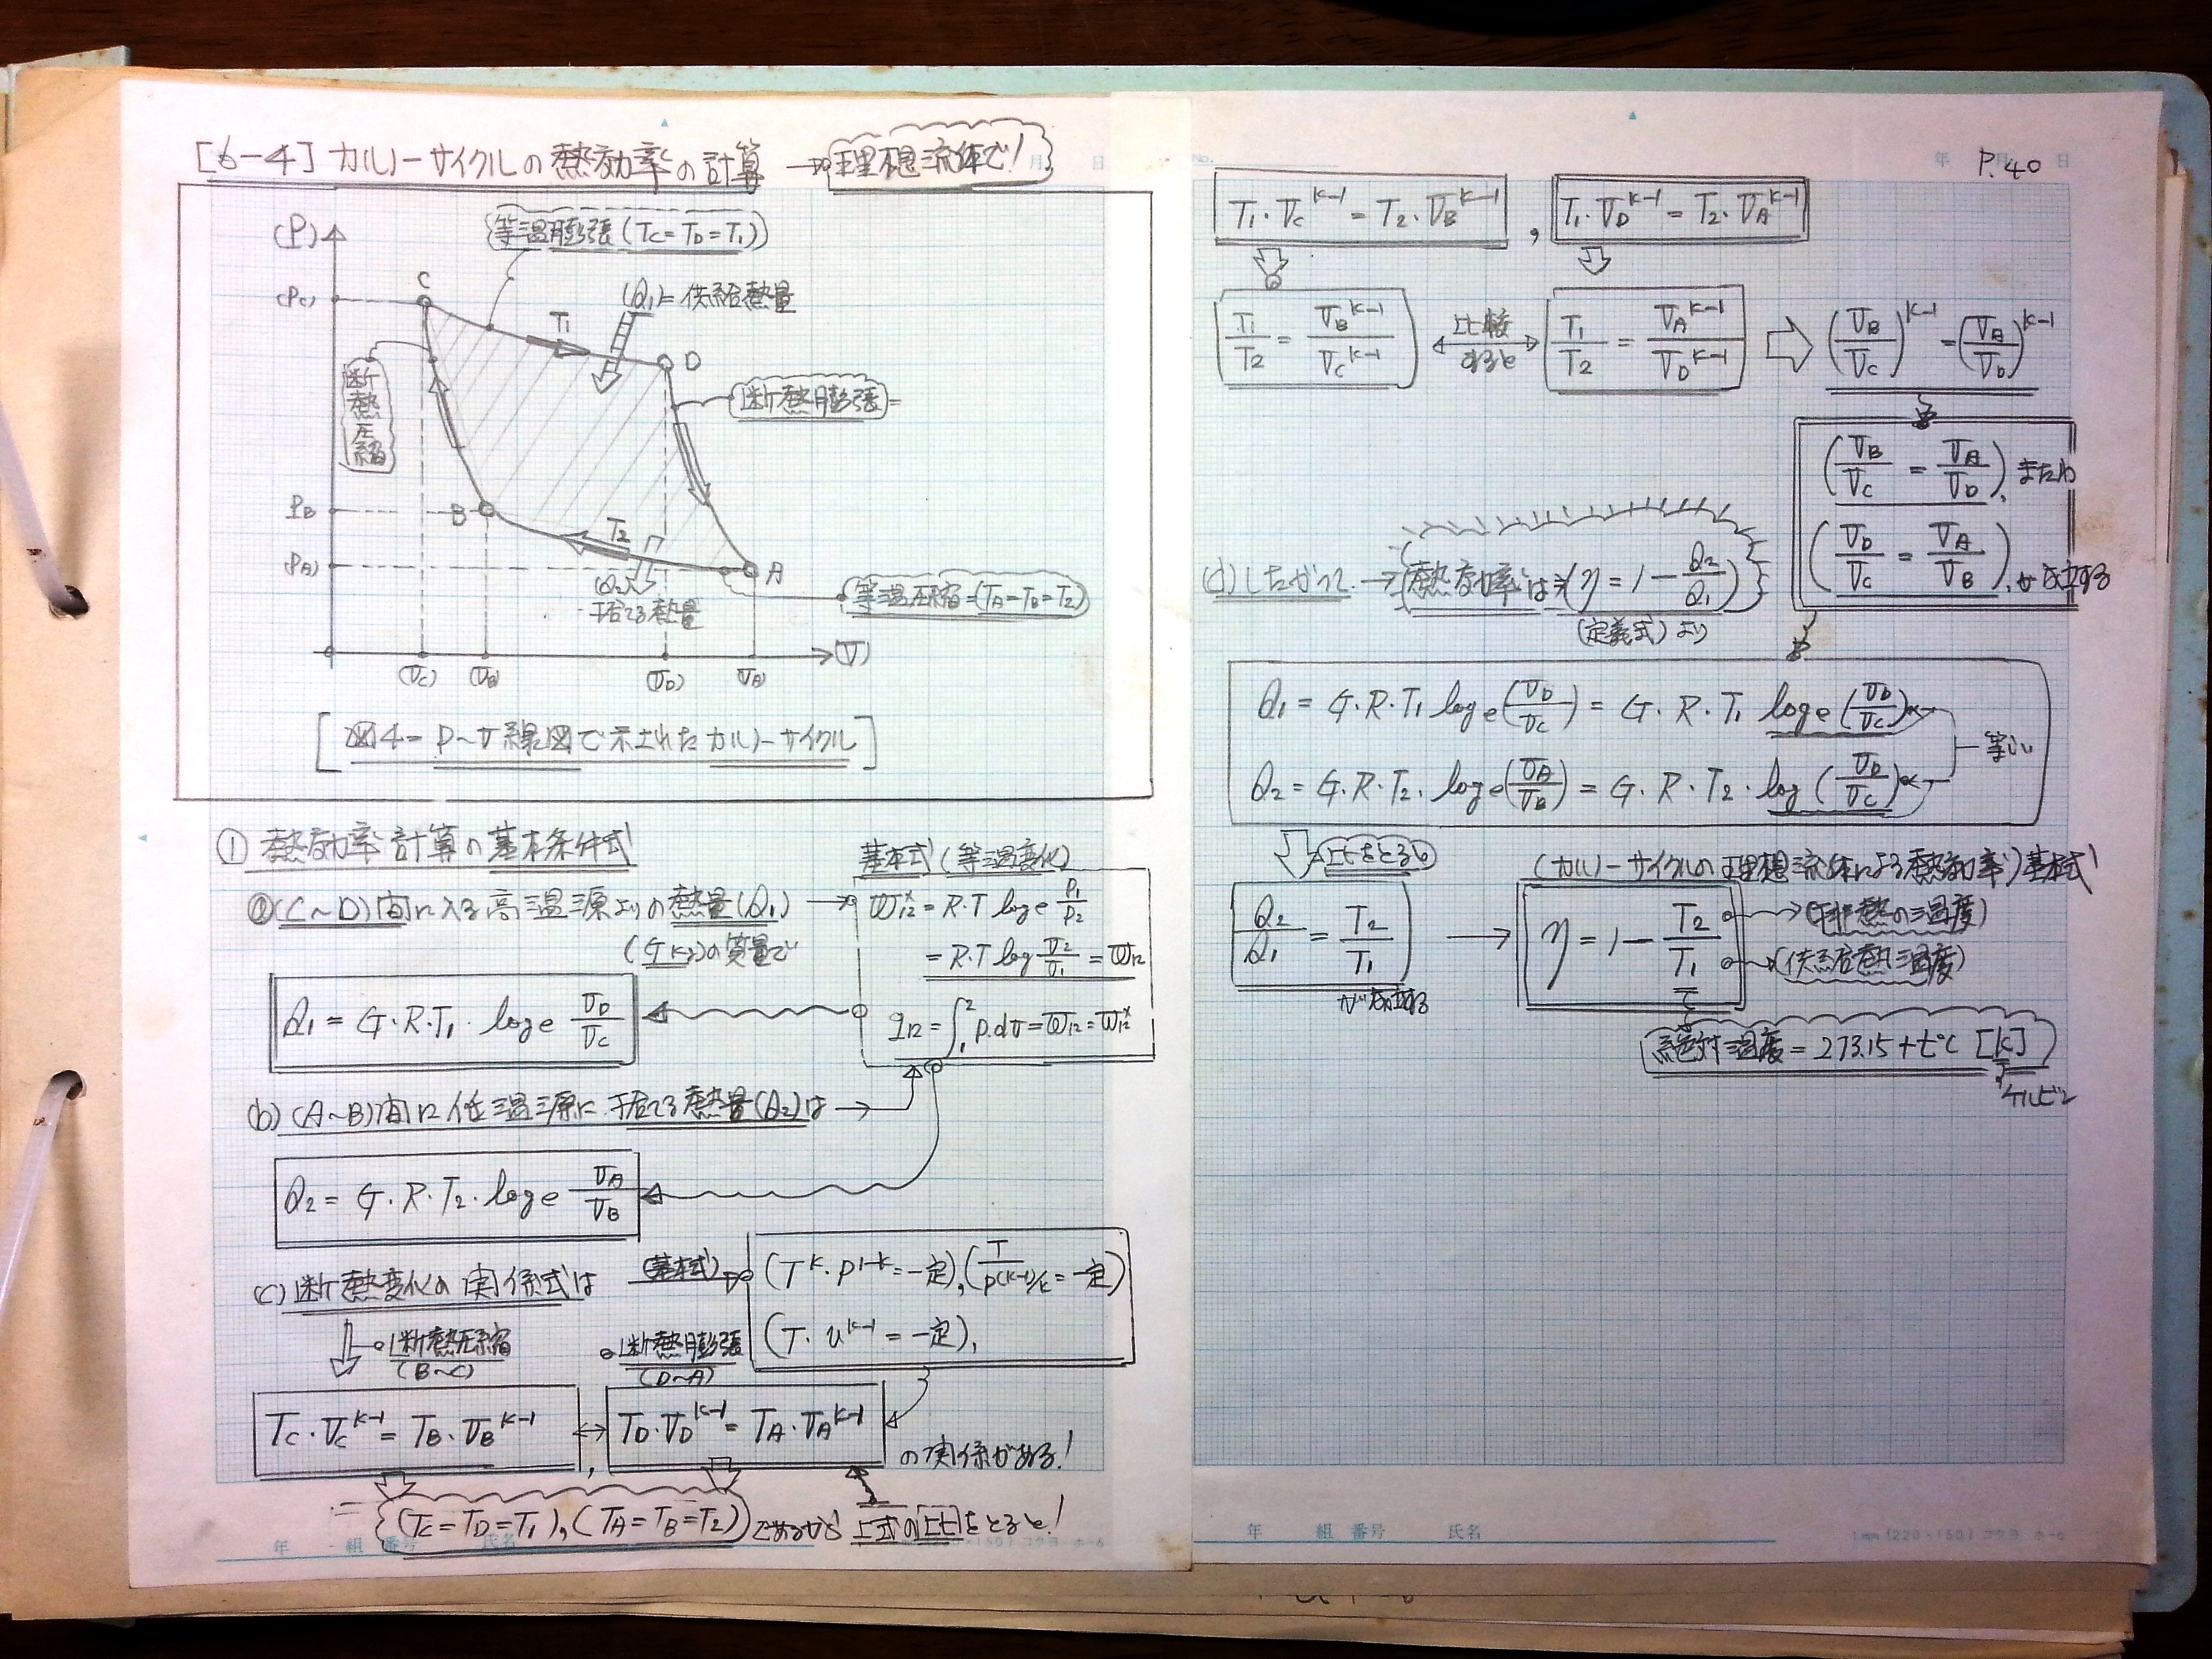 [6-4] カルノーサイクルの熱効率の計算 → 理想流体で!
(P)
等温膨張 (Tc=TD=T1)
C
(Pc)
(Q1)= 供給熱量
T1
D
断熱圧縮
断熱膨張=
PB
B
T2
(PA)
A
(Q2)
捨てる熱量
等温圧縮=(TA=TB=T2)
(Vc) (VB) (VD) VA) (V)
[図4= P~V線図で示されたカルノーサイクル]
① 熱効率計算の基本条件式
基本式 (等温変化)
ⓐ (C~D)間に入る高温源よりの熱量(Q1) →
(G kg)の質量で
W12* = R・T loge P1/P2
= R・T log V2/V1 = W12
Q1 = G・R・T1・loge VD/VC
q12 = ∫₁² P・dv = W12 = W12*
(b) (A~B)間に低温源に捨てる熱量(Q2)は →
Q2 = G・R・T2・loge VA/VB
(c) 断熱変化の関係式は
(基本式)
(T^k・P^1-k = 一定), (T/P^(k-1)/k = 一定)
(T・v^k-1 = 一定),
断熱圧縮
(B~C)
断熱膨張
(D~A)
Tc・Vc^k-1 = TB・VB^k-1 ↔ TD・VD^k-1 = TA・VA^k-1
の関係がある!
(Tc=TD=T1), (TA=TB=T2) であるから 上式の比をとると!
年 組 番号 氏名
No.
年 月 日
P.40
T1・Vc^k-1 = T2・VB^k-1 , T1・VD^k-1 = T2・VA^k-1
T1/T2 = VB^k-1/VC^k-1 ↔ 比較すると T1/T2 = VA^k-1/VD^k-1 ⇒ (VB/VC)^k-1 = (VA/VD)^k-1
(VB/VC = VA/VD), または
(VD/VC = VA/VB), が成立する
(d) したがって. → 熱効率は (η = 1 - Q2/Q1)
(定義式)より
Q1 = G・R・T1 loge (VD/VC) = G・R・T1 loge (VD/VC)
等しい
Q2 = G・R・T2・loge (VA/VB) = G・R・T2・log (VD/VC)
比をとると
(カルノーサイクルの理想流体による熱効率)基本式
Q2/Q1 = T2/T1
が成立する
η = 1 - T2/T1
(排熱の温度)
(供給熱温度)
絶対温度 = 273.15 + t℃ [K]
ケルビン
年 組 番号 氏名
1mm (220×150) コクヨ ホ-6